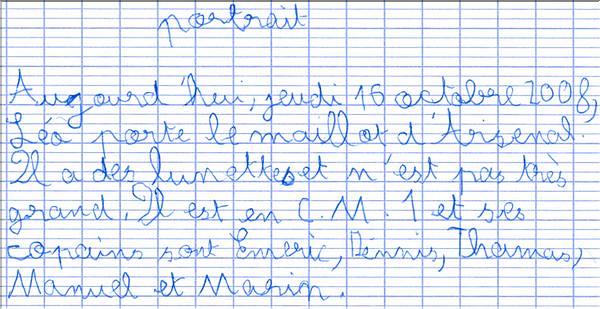 portrait
Aujourd'hui, jeudi 16 octobre 2008,
Léo porte le maillot d'Arsenal.
Il a des lunettes et n'est pas très
grand. Il est en C.M.1 et ses
copains sont Emeric, Dennis, Thomas,
Manuel et Marin.